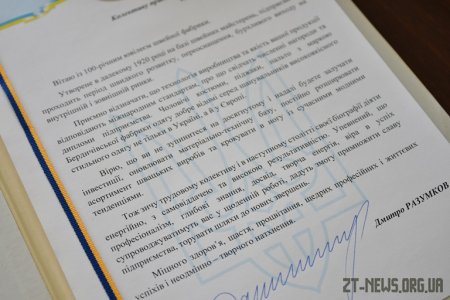 Колективу
Вітаю із 100-річним ювілеєм швейної фабрики.
Утворене в далекому 1920 році на базі швейних майстерень, підприємство
проходить період швидкого розвитку, переоснащення, бурхливого виходу на
внутрішній і зовнішній ринки.
Приємно відзначити, що технологія виробництва та якість вашої продукції
відповідають міжнародним стандартам, про що свідчать численні нагороди та
дипломи підприємства. Чоловічі костюми, піджаки, пальто з маркою
Бердичівської фабрики одягу добре відомі серед шанувальників високоякісного
стильного одягу не тільки в Україні, а й у Європі.
Вірю, що ви не зупинитеся на досягнутому і надалі будете залучати
інвестиції, оновлювати матеріально-технічну базу, постійно розширювати
асортимент швацьких виробів та крокувати в ногу із сучасними модними
тенденціями.
Тож зичу трудовому колективу і в наступному столітті своєї біографії діяти
енергійно, з самовіддачею та високою результативністю. Упевнений, що
професіоналізм, глибокі знання, досвід, творча енергія, віра в успіх
супроводжуватимуть вас у щоденній роботі, дадуть змогу примножити славу
підприємства, торувати шляхи до нових звершень.
Міцного здоров'я, щастя, процвітання, щедрих професійних і життєвих
успіхів і неодмінно – творчого натхнення.
Дмитро РАЗУМКОВ
ZT-NEWS.ORG.UA